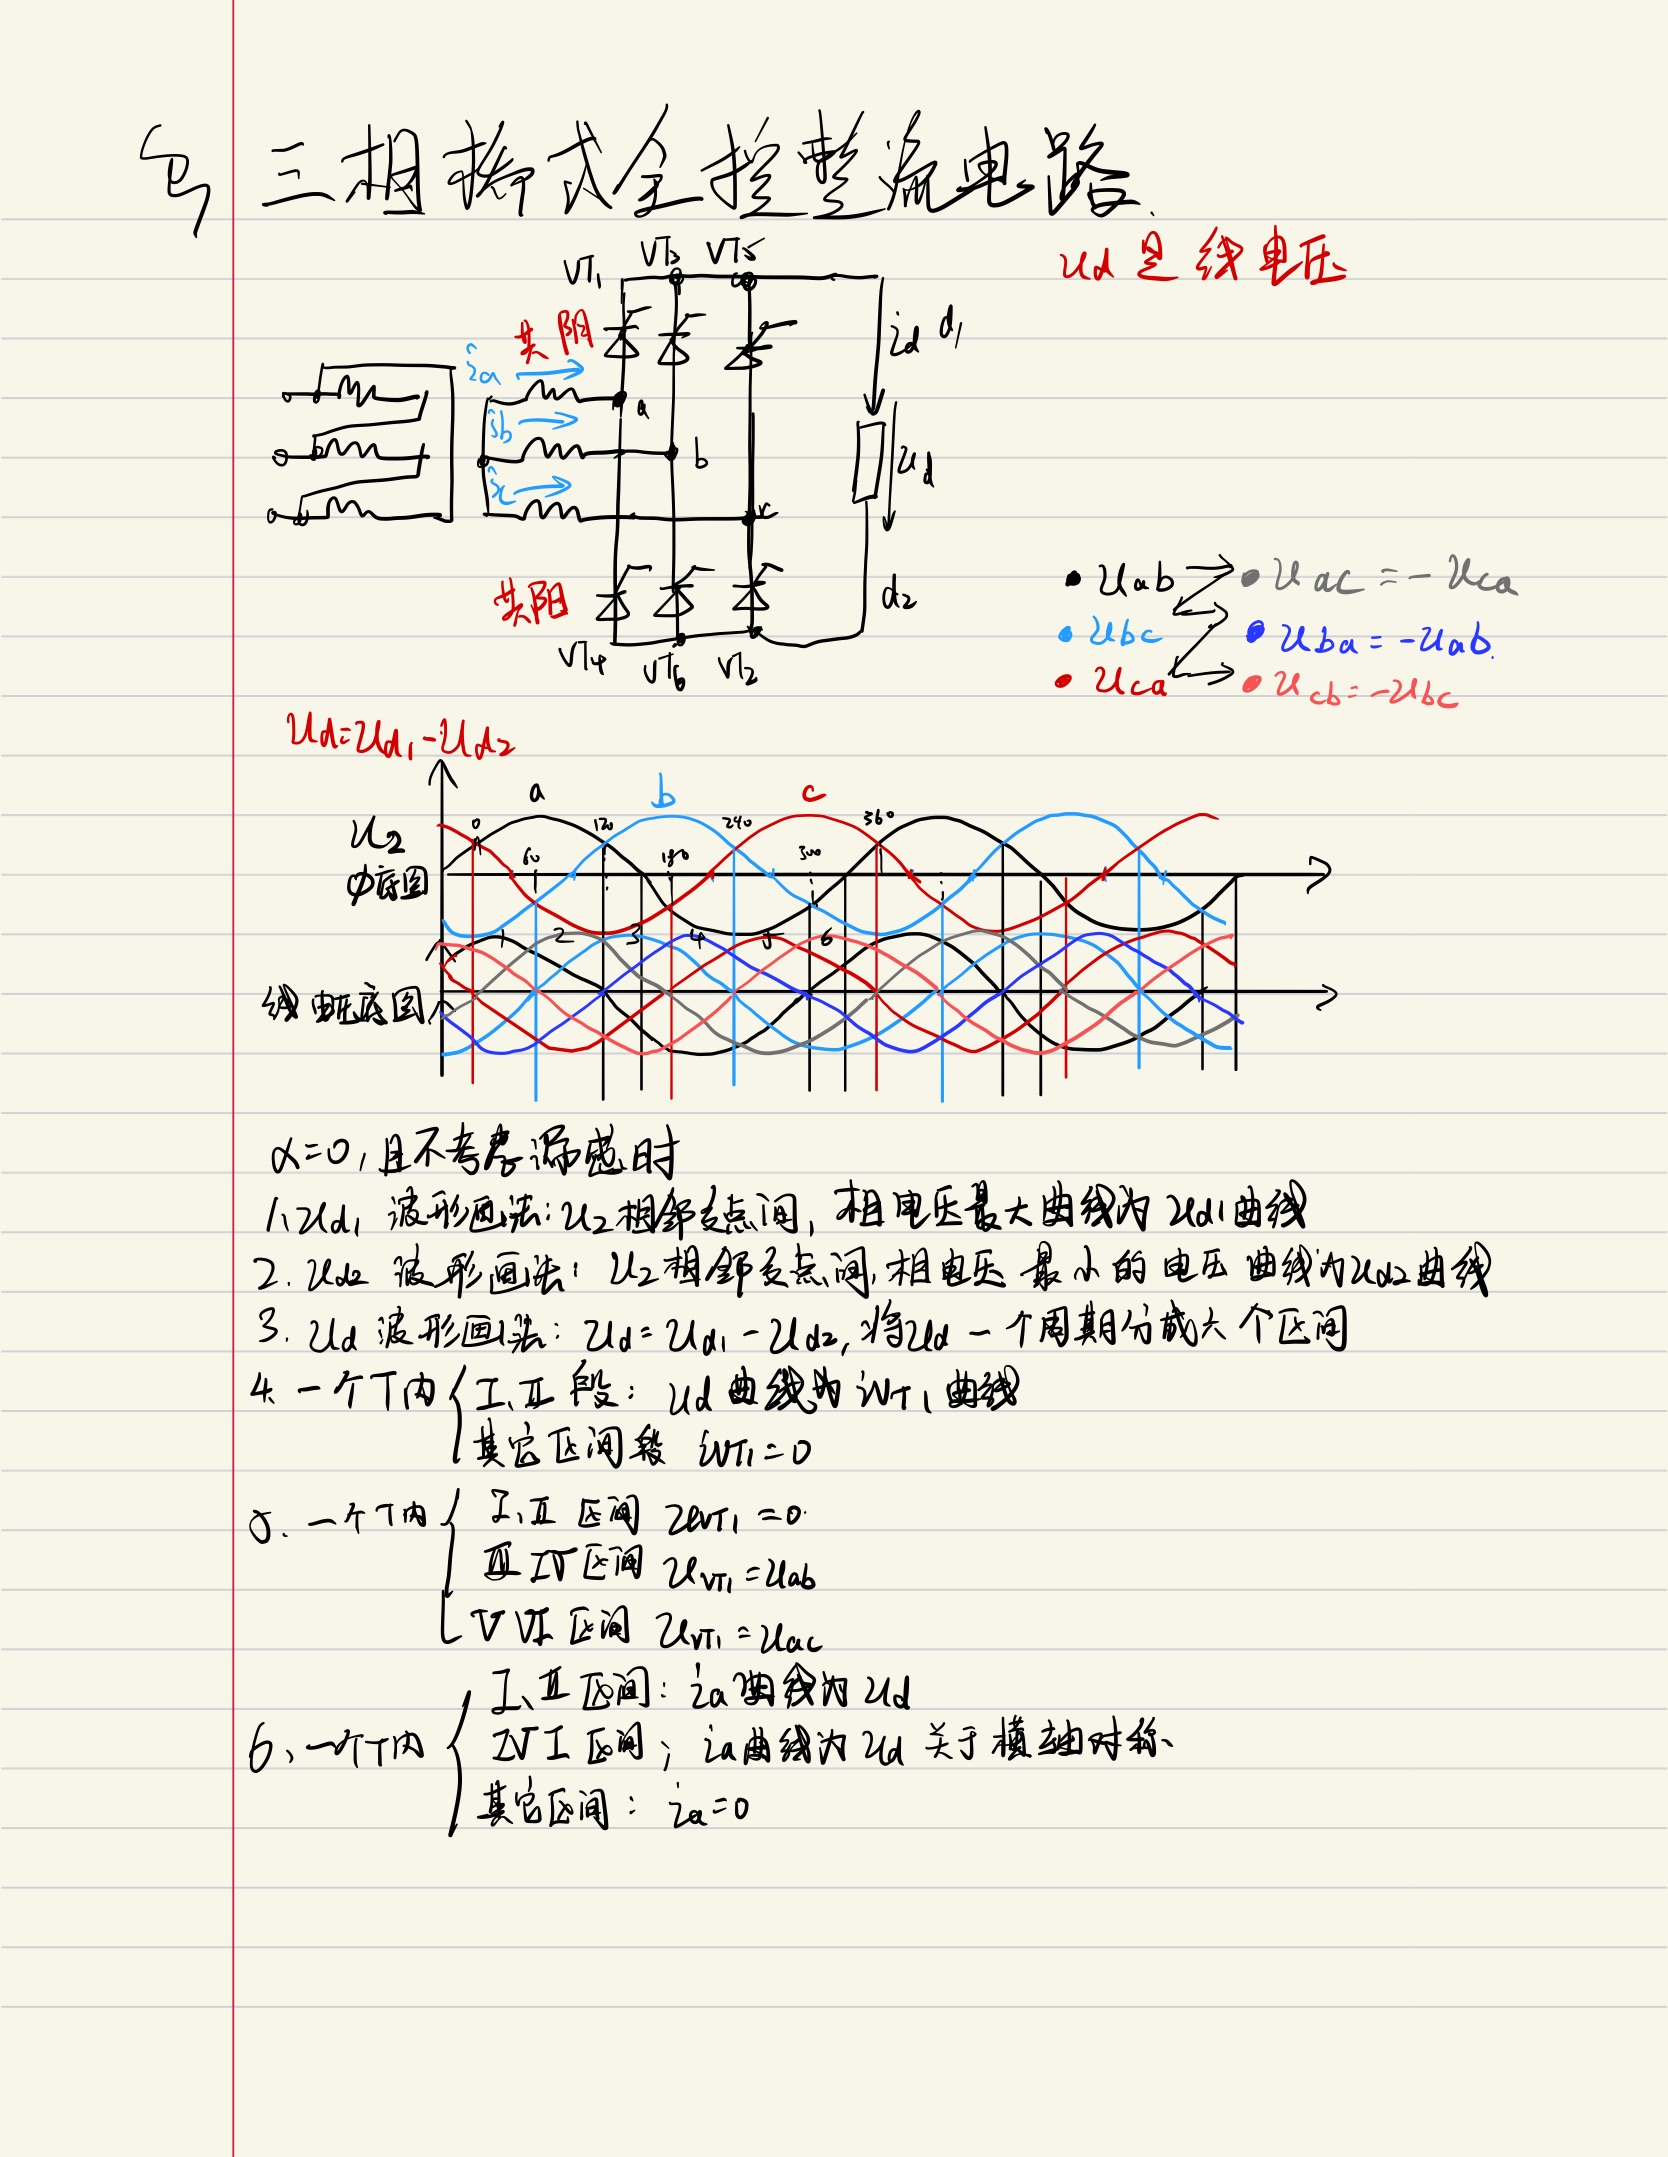 三相桥式全控整流电路
ud 是线电压
VT1 VT3 VT5
共阴
id d1
ia
a
ib
b
ud
ic
c
共阳
d2
VT4 VT6 VT2
uab uac = -uca
ubc uba = -uab
uca ucb = -ubc
ud = ud1 - ud2
a b c
u2
0 120 240 360
60 180 300
底图
1 2 3 4 5 6
线电压底图
α=0, 且不考虑漏感时
1、ud1 波形画法: u2相邻交点间, 相电压最大曲线为 ud1曲线
2. ud2 波形画法: u2相邻交点间, 相电压最小的电压曲线为ud2曲线
3. ud 波形画法: ud = ud1 - ud2, 将ud一个周期分成六个区间
4. 一个T内 I、II 段: ud曲线为 iVT1 曲线
其它区间段 iVT1=0
5. 一个T内 I、II 区间 uVT1 =0
III IV 区间 uVT1 = uab
V VI 区间 uVT1 = uac
6、一个T内 I、II 区间: ia 曲线为 ud
IV I 区间; ia曲线为 ud 关于横轴对称、
其它区间: ia=0